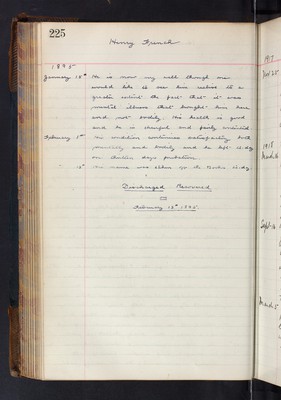 225
Henry French
January 18th He is now very well though one
would like to see him realise to a
greater extent the fact that it was
mental illness that brought him here
and not bodily. His health is good
and he is cheerful and fairly
February His condition continues satisfactory both
mentally and bodily and he left to-day
on days probation.
13th His name was taken off the Books to-day.
Discharged Recovered
February 13th
1917
Nov 25
1918
March
Sept 16
March 5